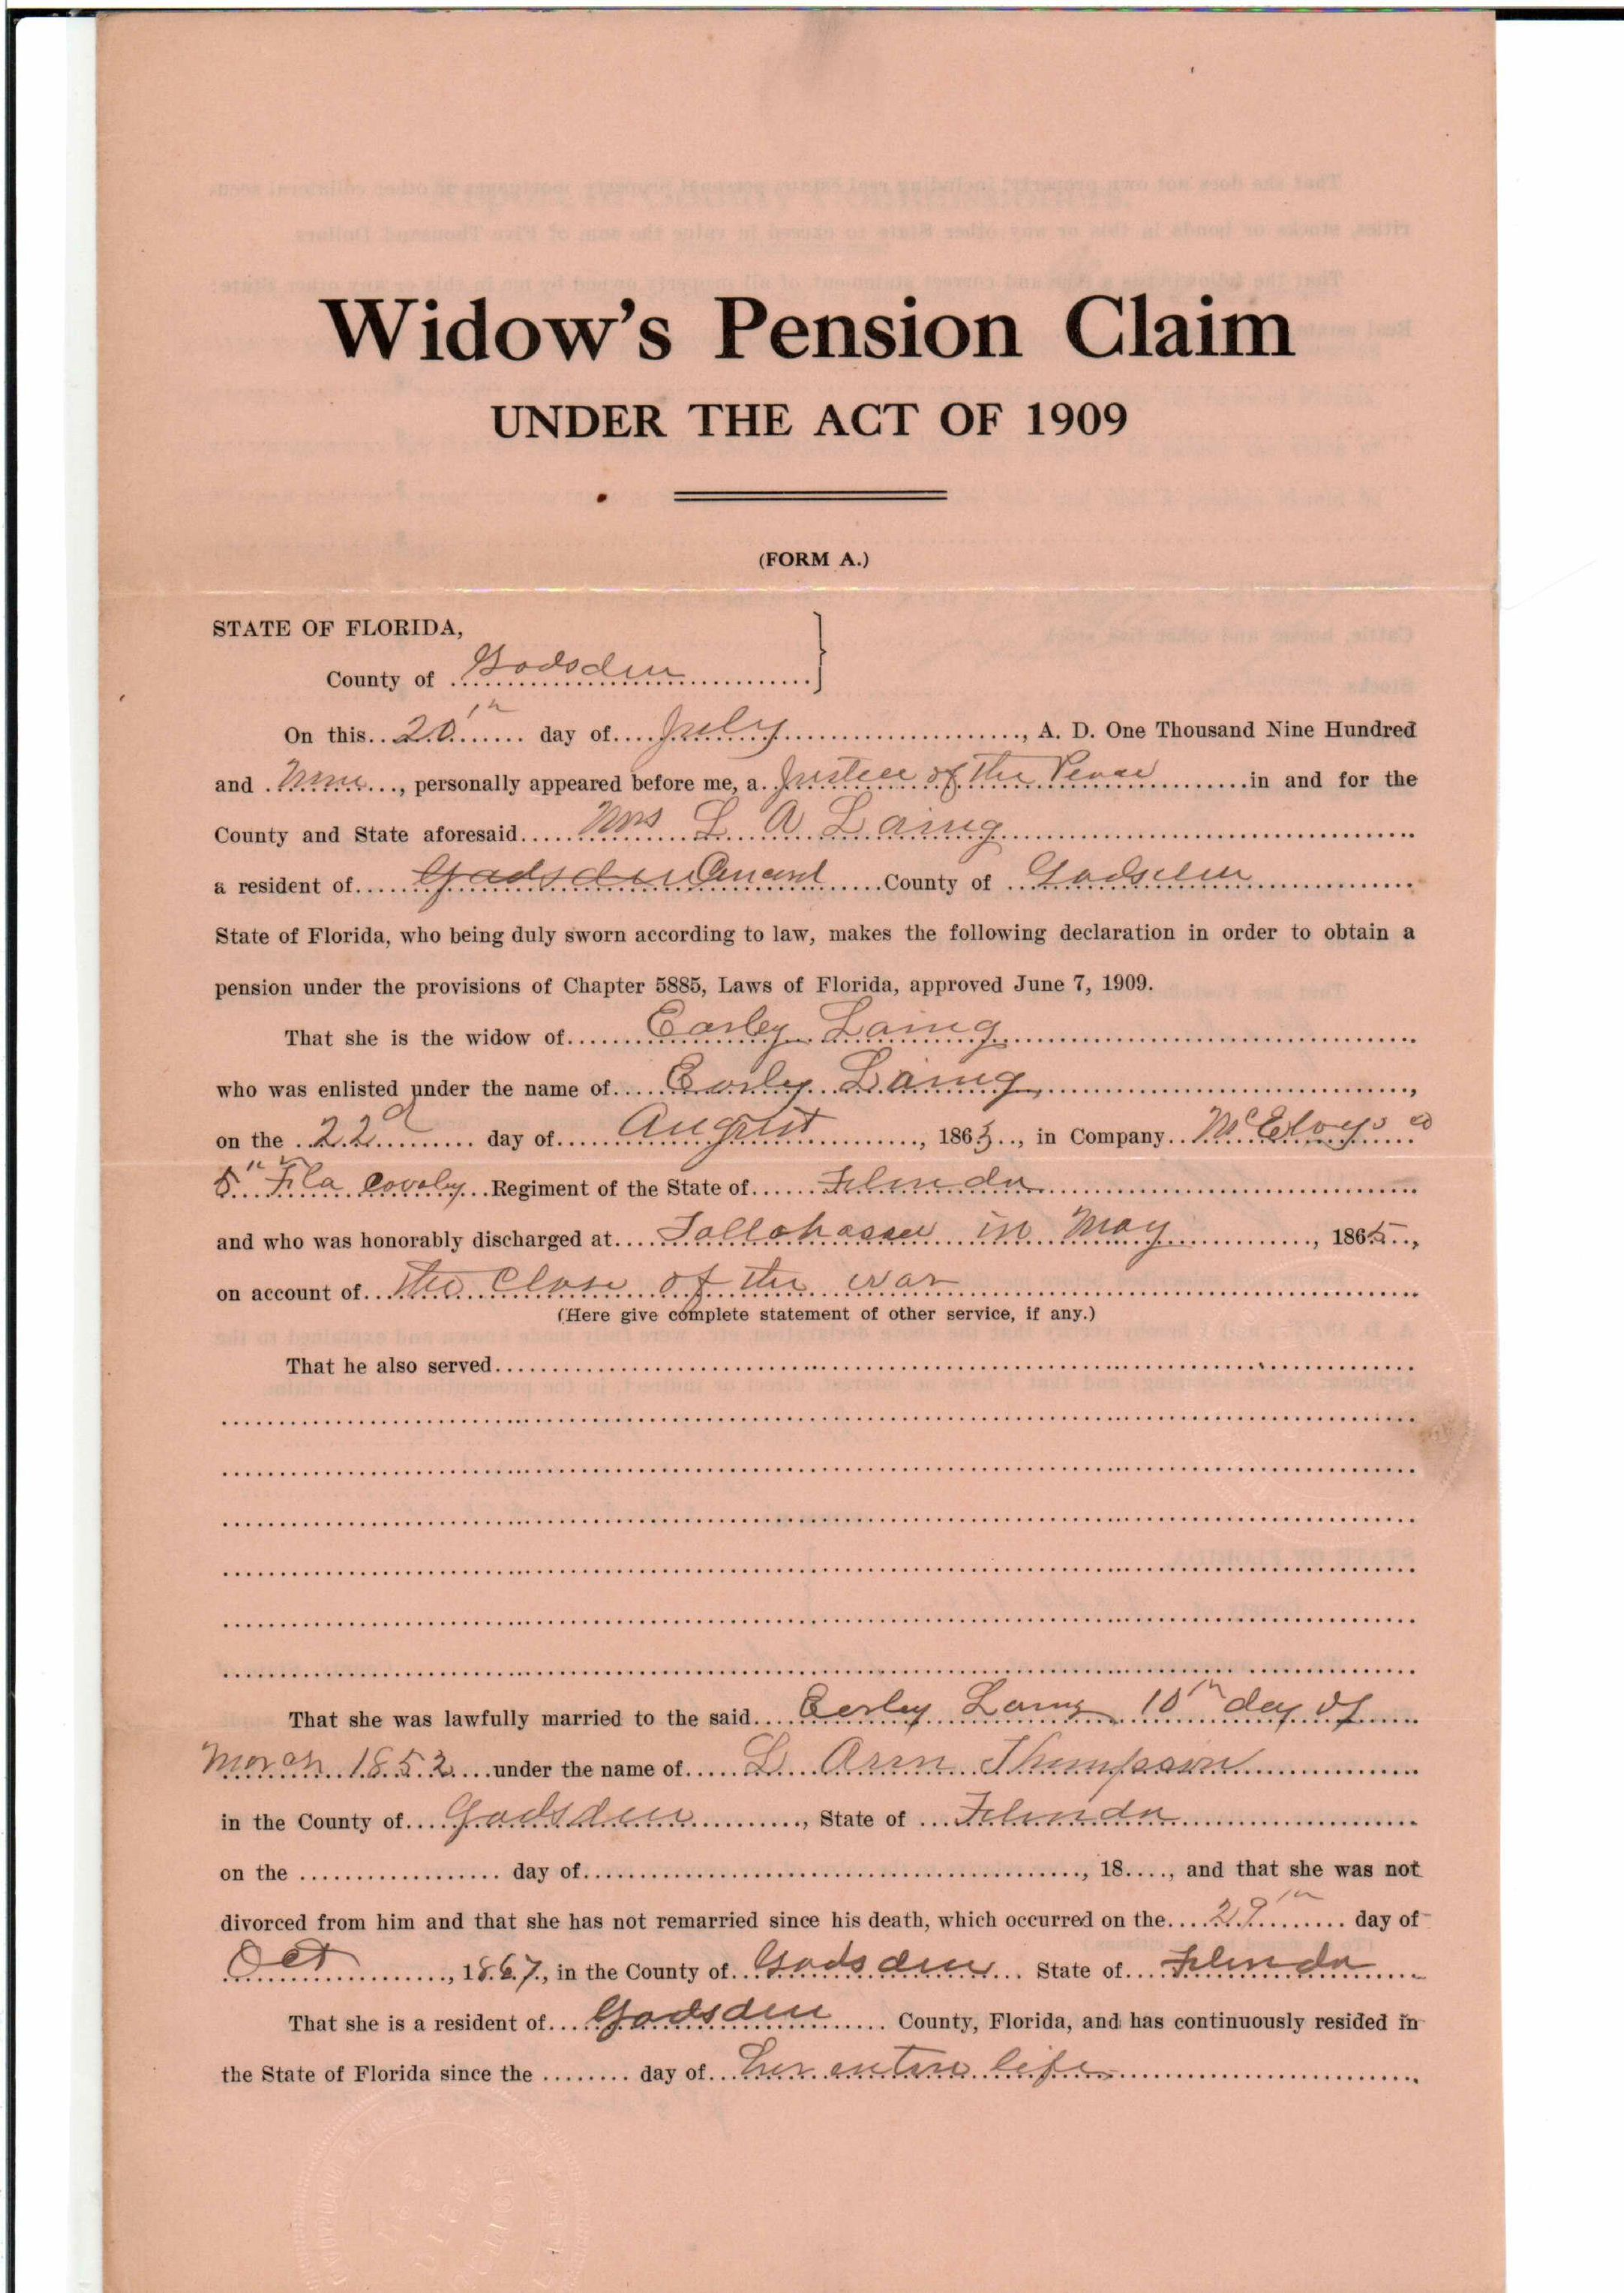 Widow's Pension Claim
UNDER THE ACT OF 1909
(FORM A.)
STATE OF FLORIDA,
County of Gadsden
On this 20th day of July, A. D. One Thousand Nine Hundred
and Nine, personally appeared before me, a Justice of the Peace in and for the
County and State aforesaid Mrs L A Laing
a resident of Gadsden County of Gadsden
State of Florida, who being duly sworn according to law, makes the following declaration in order to obtain a
pension under the provisions of Chapter 5885, Laws of Florida, approved June 7, 1909.
That she is the widow of Earley Laing
who was enlisted under the name of Earley Laing,
on the 22d day of August, 1863, in Company McElvys Co
5th Fla Cavaly Regiment of the State of Florida
and who was honorably discharged at Tallahassee in May, 1865,
on account of The Close of the war
(Here give complete statement of other service, if any.)
That he also served
That she was lawfully married to the said Earley Laing 10th day of
March 1852 under the name of L Ann Thompson
in the County of Gadsden, State of Florida
on the day of, 18, and that she was not
divorced from him and that she has not remarried since his death, which occurred on the 29th day of
Oct, 1867, in the County of Gadsden State of Florida
That she is a resident of Gadsden County, Florida, and has continuously resided in
the State of Florida since the day of her entire life